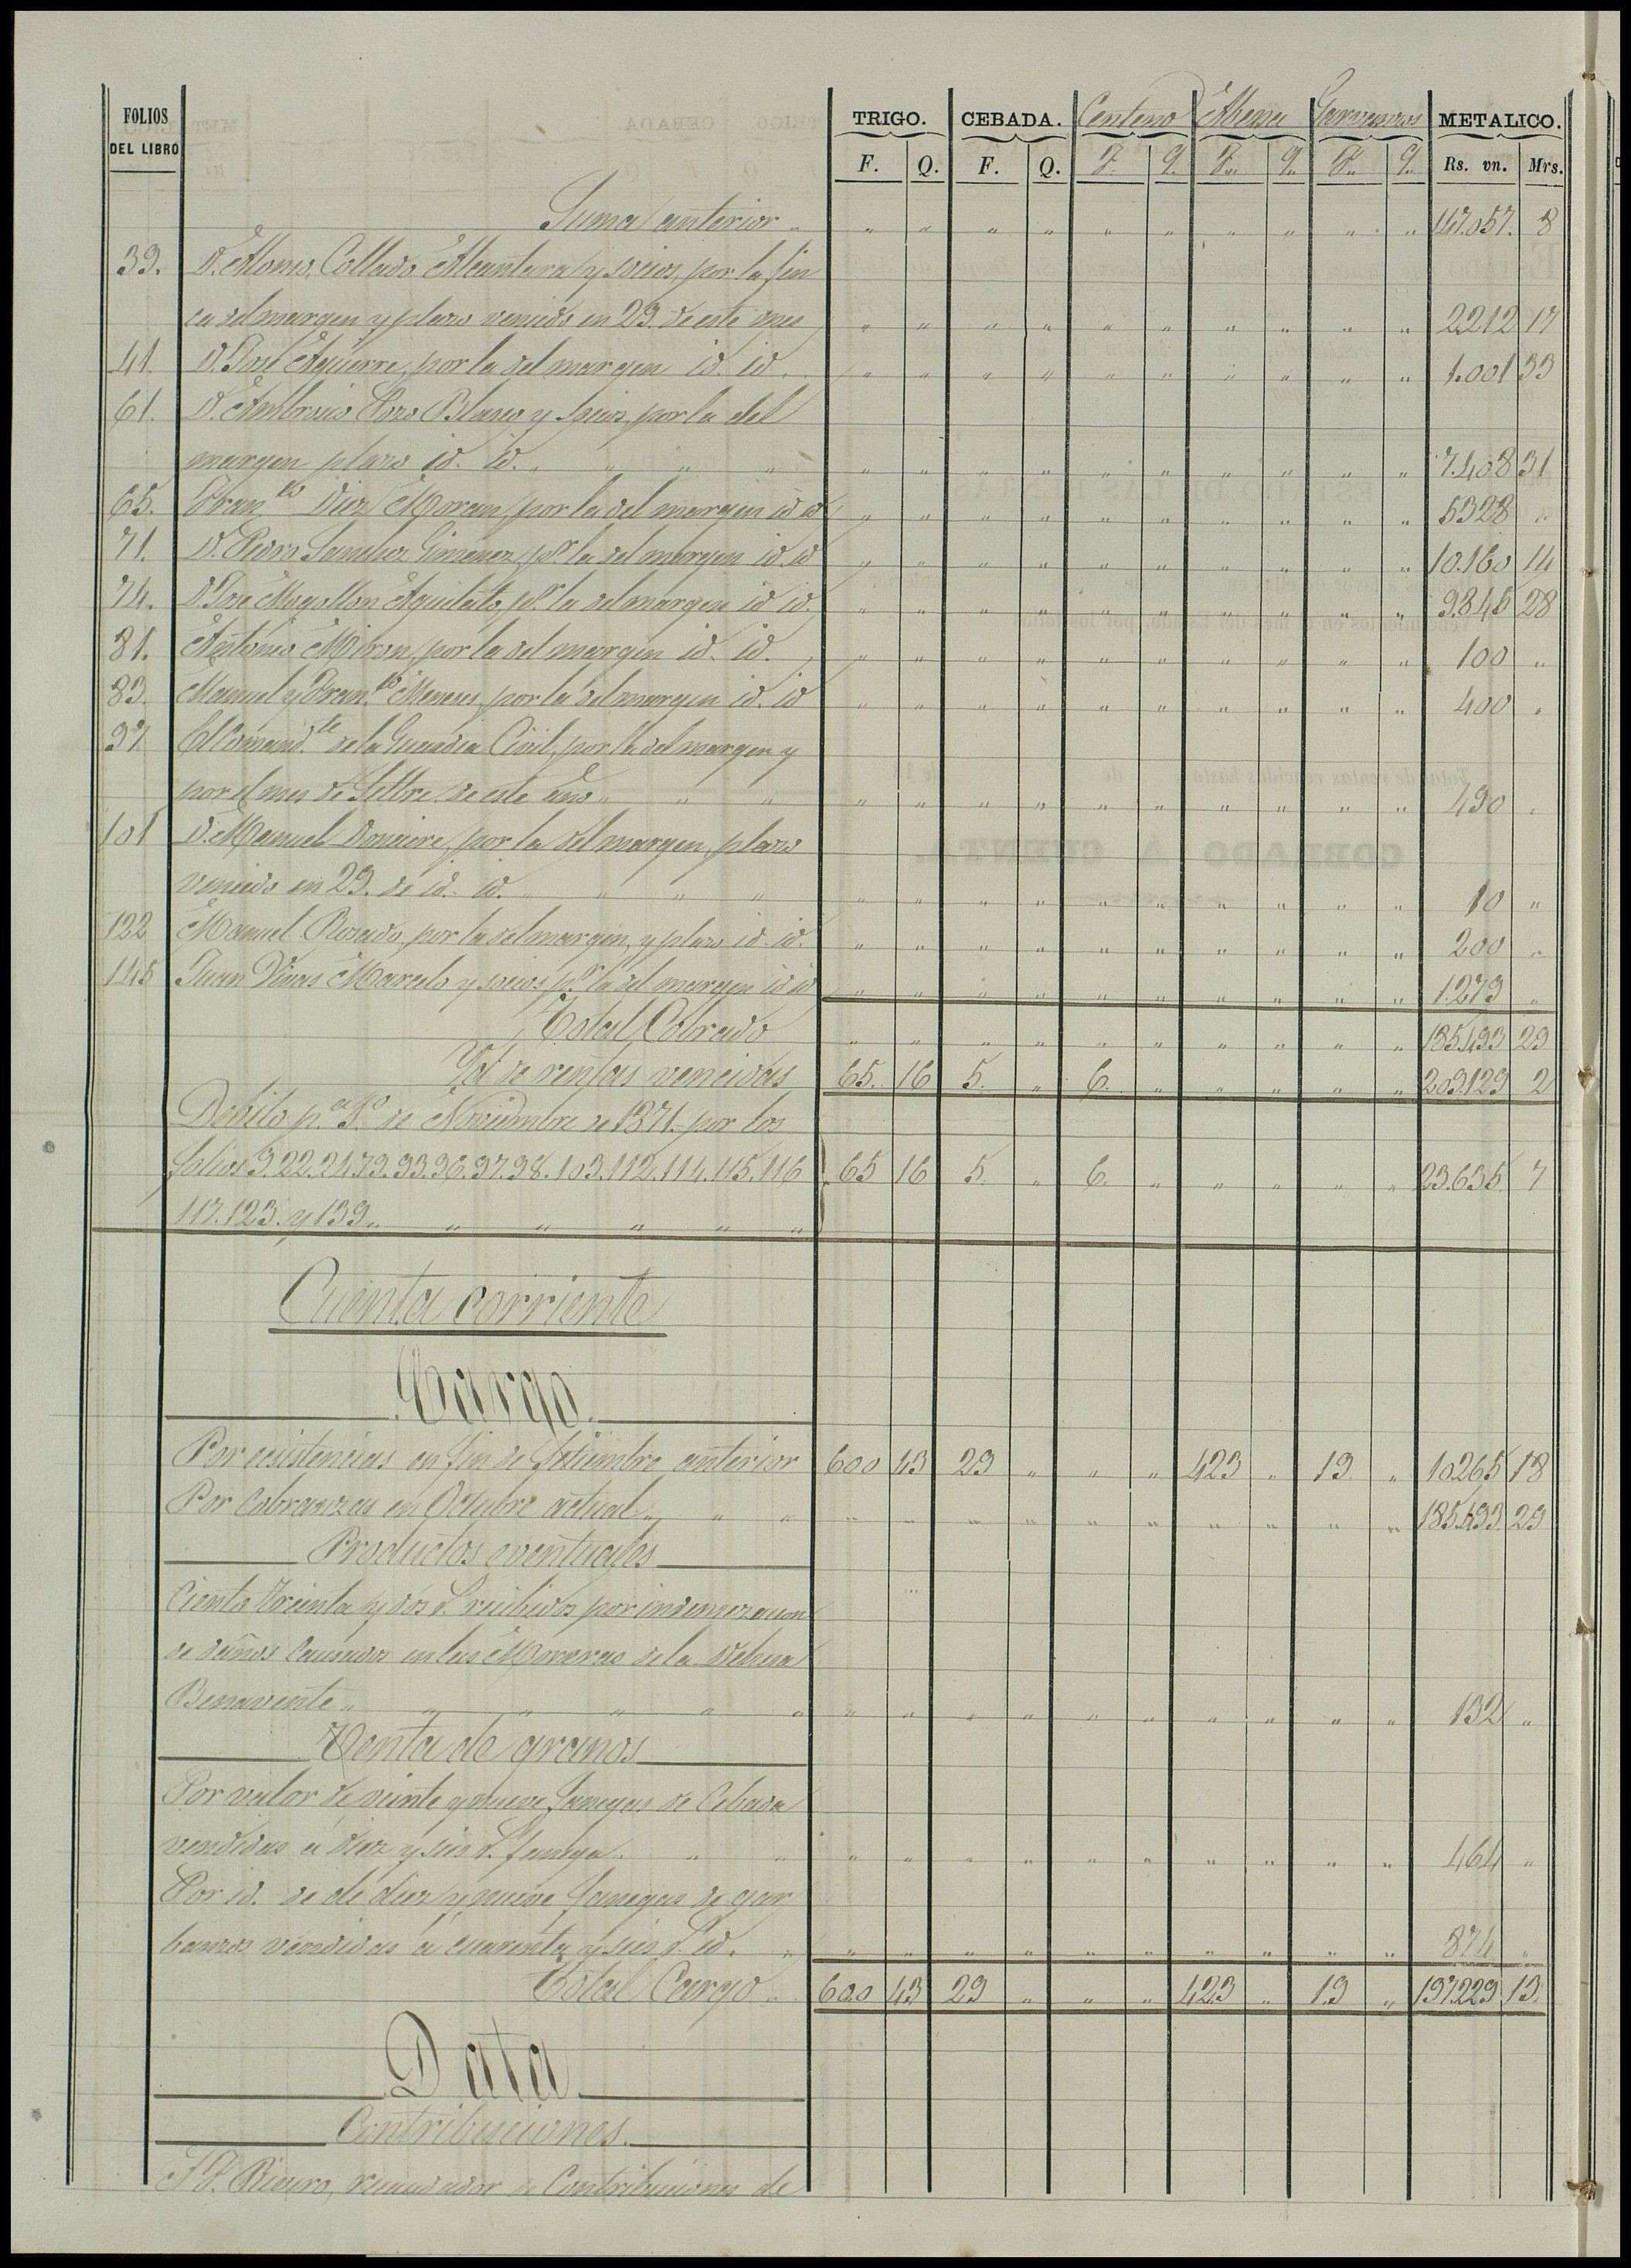 FOLIOS DEL LIBRO TRIGO. CEBADA. Centeno Abena Garvanzos METALICO.
F. Q. F. Q. F. Q. F. Q. F. Q. Rs. vn. Mrs.
Suma anterior " " " " " " " " " " 147.057. 8
39. D. Alonso Collado Alcantara y socios, por la fin
ca del margen y plazo vencido en 29. de este mes " " " " " " " " " " 2212 17
41. D. José Aguirre, por la del margen id. id. " " " " " " " " " " 1.001 33
61. D. Ambrosio Pozo Blanco y socios, por la del
margen plazo id. id. " " " " " " " " " " " " " 7.408 31
65. Franco Diez Moran, por la del margen id id " " " " " " " " " " 5328 "
71. D. Pedro Sanchez Gimenez, pr. la del margen id. id " " " " " " " " " " 10.160 14
74. D. José Mogollon Aguilato, pr. la del margen id id. " " " " " " " " " " 9.845 28
81. Antonio Miron, por la del margen id. id. " " " " " " " " " " 100 "
83. Manuel y Franco Meneses, por la del margen id. id " " " " " " " " " " 400 "
97 El Comandte de la Guardia Civil, por la del margen y
por el mes de Setbre. de este año " " " " " " " " " " " " " 490 "
101 D. Manuel Donaire, por la del margen, plazo
vencido en 29. de id. id. " " " " " " " " " " " " " 10 "
122 Manuel Rosado, por la del margen, y plazo id. id. " " " " " " " " " " 200 "
145 Juan Vivas Marcelo y socios, pr. la del margen id id " " " " " " " " " " 1.279 "
Total Cobrado " " " " " " " " " " 185.493 29
Yd. de rentas vencidas 65. 16 5. " 6. " " " " " 209.129 2
Debito pa. 1o. de Noviembre de 1871. por los
folios 9.22.24.79.93.96.97.98.103.112.114.115.116 65 16 5. " 6. " " " " " 23.635 7
117.123. y 139. " " " " "
Cuenta corriente
Cargo.
Por ecsistencias en fin de Setiembre anterior 600 43 29 " " " 423 " 19 " 10265 18
Por Cobranzas en Octubre actual " " " " " " " " " " " " " 185.493. 29
Productos eventuales
Ciento treinta y dos r. recibidos por indemnizacion
de daños causados en las Moreras de la Dehesa
Benavente " " " " " " " " " " " " " " " 132 "
Venta de granos
Por valor de veinte y nueve fanegas de Cebada
vendidas a diez y seis r. fanega. " " " " " " " " " " " " 464 "
Por id. de de diez y nueve fanegas de gar
banzos vendidas á cuarenta y seis r. id. " " " " " " " " " " " 874 "
Total Cargo " 600 43 29 " " " 423 " 19 " 197.229 13.
Data
Contribuciones.
recaudador de Contribuciones de